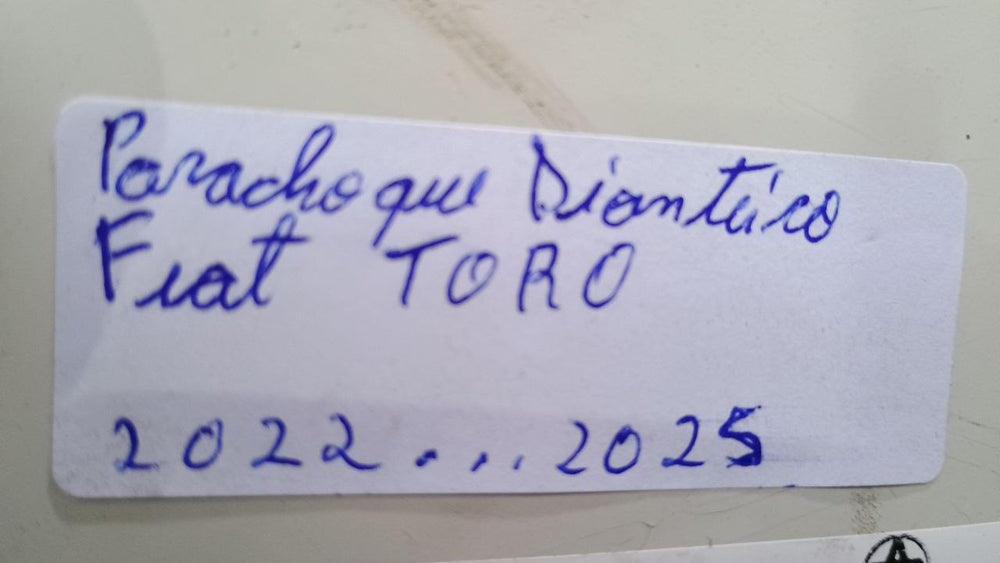 Parachoque Diantéiro
Fiat TORO
2022...2025